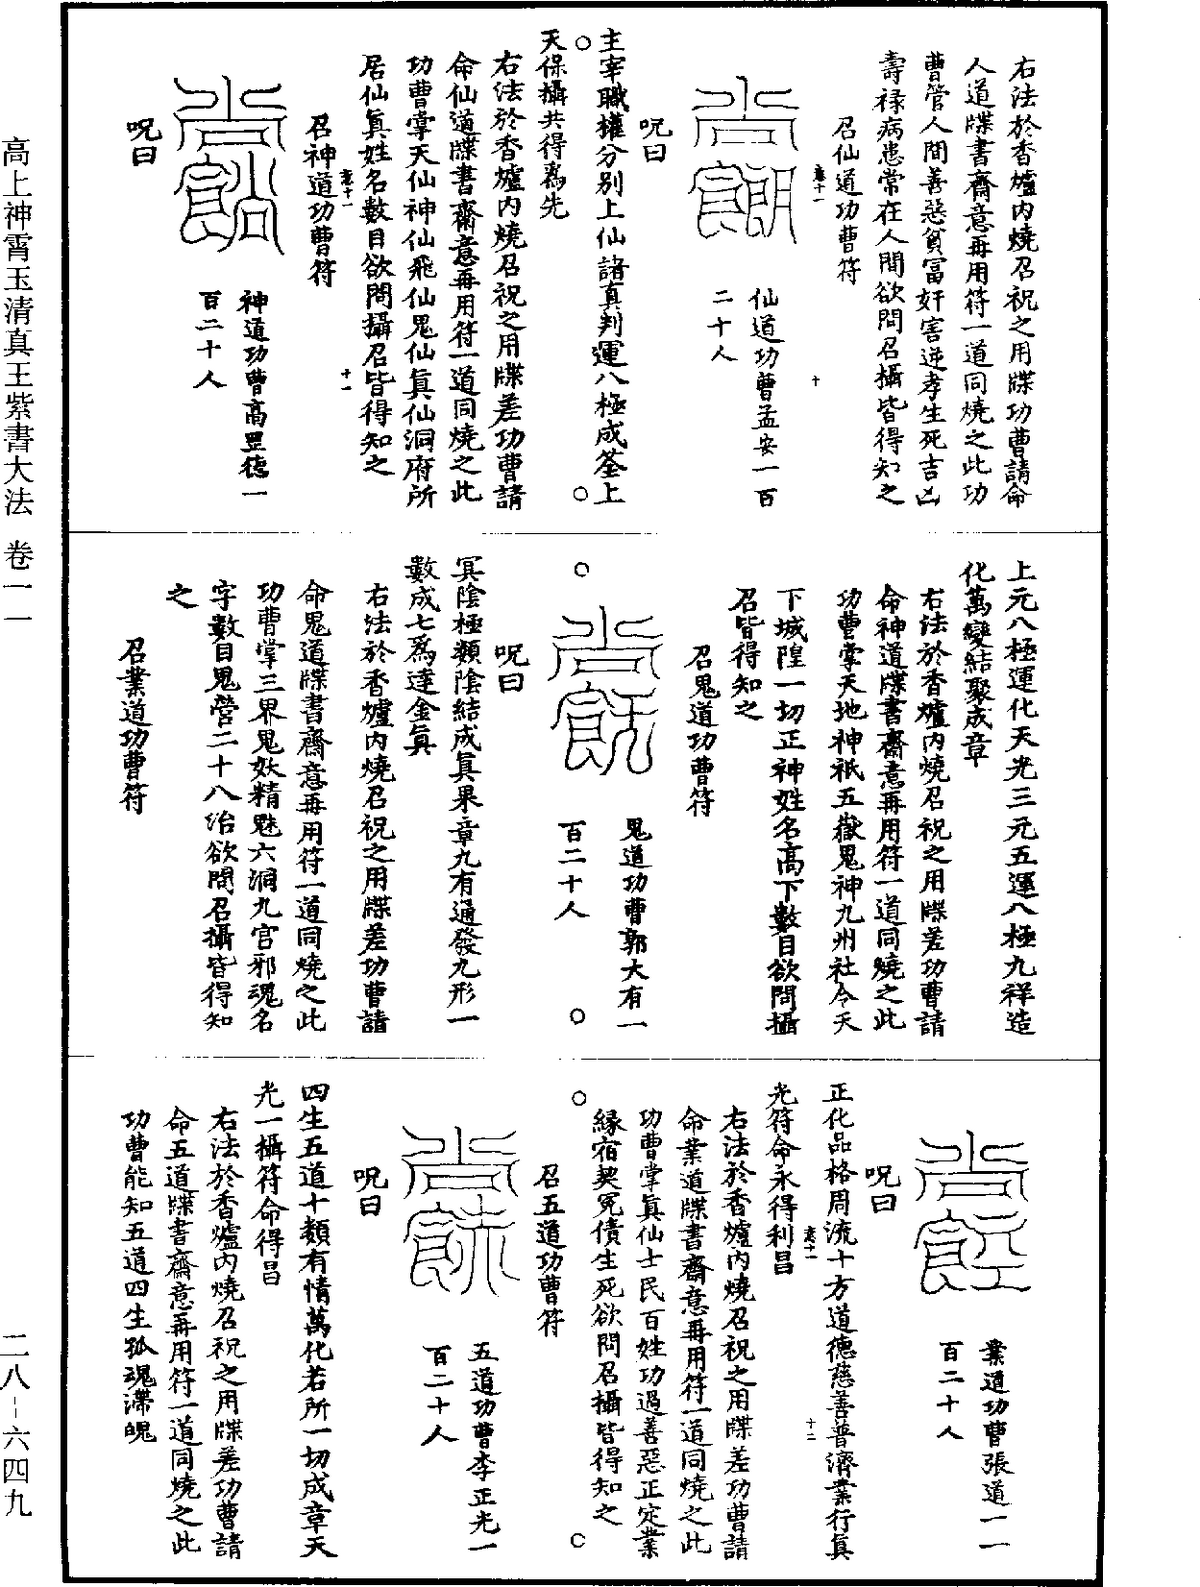 右法於香爐内燒召祝之用牒功曹請命
人道牒書齋意再用符一道同燒之此功
曹管人間善惡貧富奸害逆孝生死吉凶
壽禄病患常在人間欲問召攝皆得知之
召仙道功曹符
仙道功曹孟安一百
二十人
呪曰
主宰職權分别上仙諸真判運八極成筌上
天保攝共得爲先
右法於香爐内燒召祝之用牒差功曹請
命仙道牒書齋意再用符一道同燒之此
功曹掌天仙神仙飛仙鬼仙真仙洞府所
居仙真姓名數目欲問攝召皆得知之
召神道功曹符
神道功曹高罡德一
百二十人
呪曰
上元八極運化天光三元五運八極九祥造
化萬變結聚成章
右法於香爐内燒召祝之用牒差功曹請
命神道牒書齋意再用符一道同燒之此
功曹掌天地神祇五嶽鬼神九州社令天
下城隍一切正神姓名高下數目欲問攝
召皆得知之
召鬼道功曹符
鬼道功曹郭大有一
百二十人
呪曰
冥陰極類陰結成真果章九有通發九形一
數成七爲達金真
右法於香爐内燒召祝之用牒差功曹請
命鬼道牒書齋意再用符一道同燒之此
功曹掌三界鬼妖精魅六洞九宫邪魂名
字數目鬼營二十八治欲問召攝皆得知
之
召業道功曹符
業道功曹張道一一
百二十人
呪曰
正化品格周流十方道德慈善普濟業行真
光符命永得利昌
右法於香爐内燒召祝之用牒差功曹請
命業道牒書齋意再用符一道同燒之此
功曹掌真仙士民百姓功過善惡正定業
緣宿契冤債生死欲問召攝皆得知之
召五道功曹符
五道功曹李正光一
百二十人
呪曰
四生五道十類有情萬化若所一切成章天
光一攝符命得昌
右法於香爐内燒召祝之用牒差功曹請
命五道牒書齋意再用符一道同燒之此
功曹能知五道四生孤魂滯魄
高上神霄玉清真王紫書大法 卷一一
二八-六四九